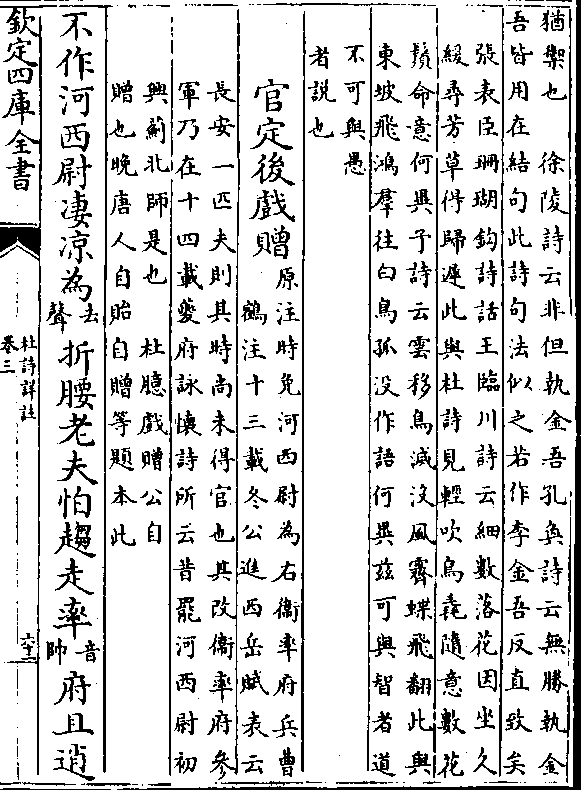 猶禦也　徐陵詩云非但執金吾孔奐詩云無勝執金
吾皆用在結句此詩句法似之若作李金吾反直致矣
張表臣珊瑚鈎詩話王臨川詩云細數落花因坐久
緩尋芳草得歸遲此與杜詩見輕吹鳥毳隨意數花
鬚命意何異予詩云雲移鳥滅沒風霽蝶飛翻此與
東坡飛鴻羣往白鳥孤没作語何異兹可與智者道
不可與愚
者説也
官定後戲贈
原注時免河西尉為右衞率府兵曹
鶴注十三載冬公進西岳賦表云
長安一匹夫則其時尚未得官也其改衞率府參
軍乃在十四載夔府詠懷詩所云昔罷河西尉初
興薊北師是也　杜臆戲贈公自
贈也晚唐人自貽自贈等題本此
不作河西尉淒凉為去聲折腰老夫怕趨走率音帥府且逍
欽定四庫全書
杜詩詳註
卷三
六十二